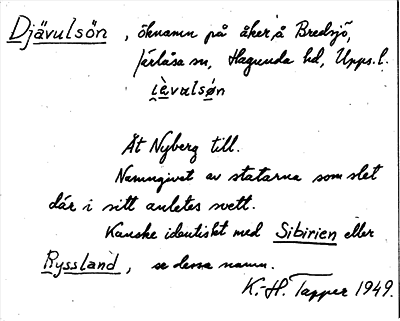 Djävulsön, öknamn på åker, å Bredsjö,
Järlåsa sn, Hagunda hd, Upps. l.
i̯è̱vulsø̀n
Åt Nyberg till.
Namngivet av statarna som slet
där i sitt anletes svett.
Kanske identiskt med Sibirien eller
Ryssland, se dessa namn.
K.-H. Tapper 1949.